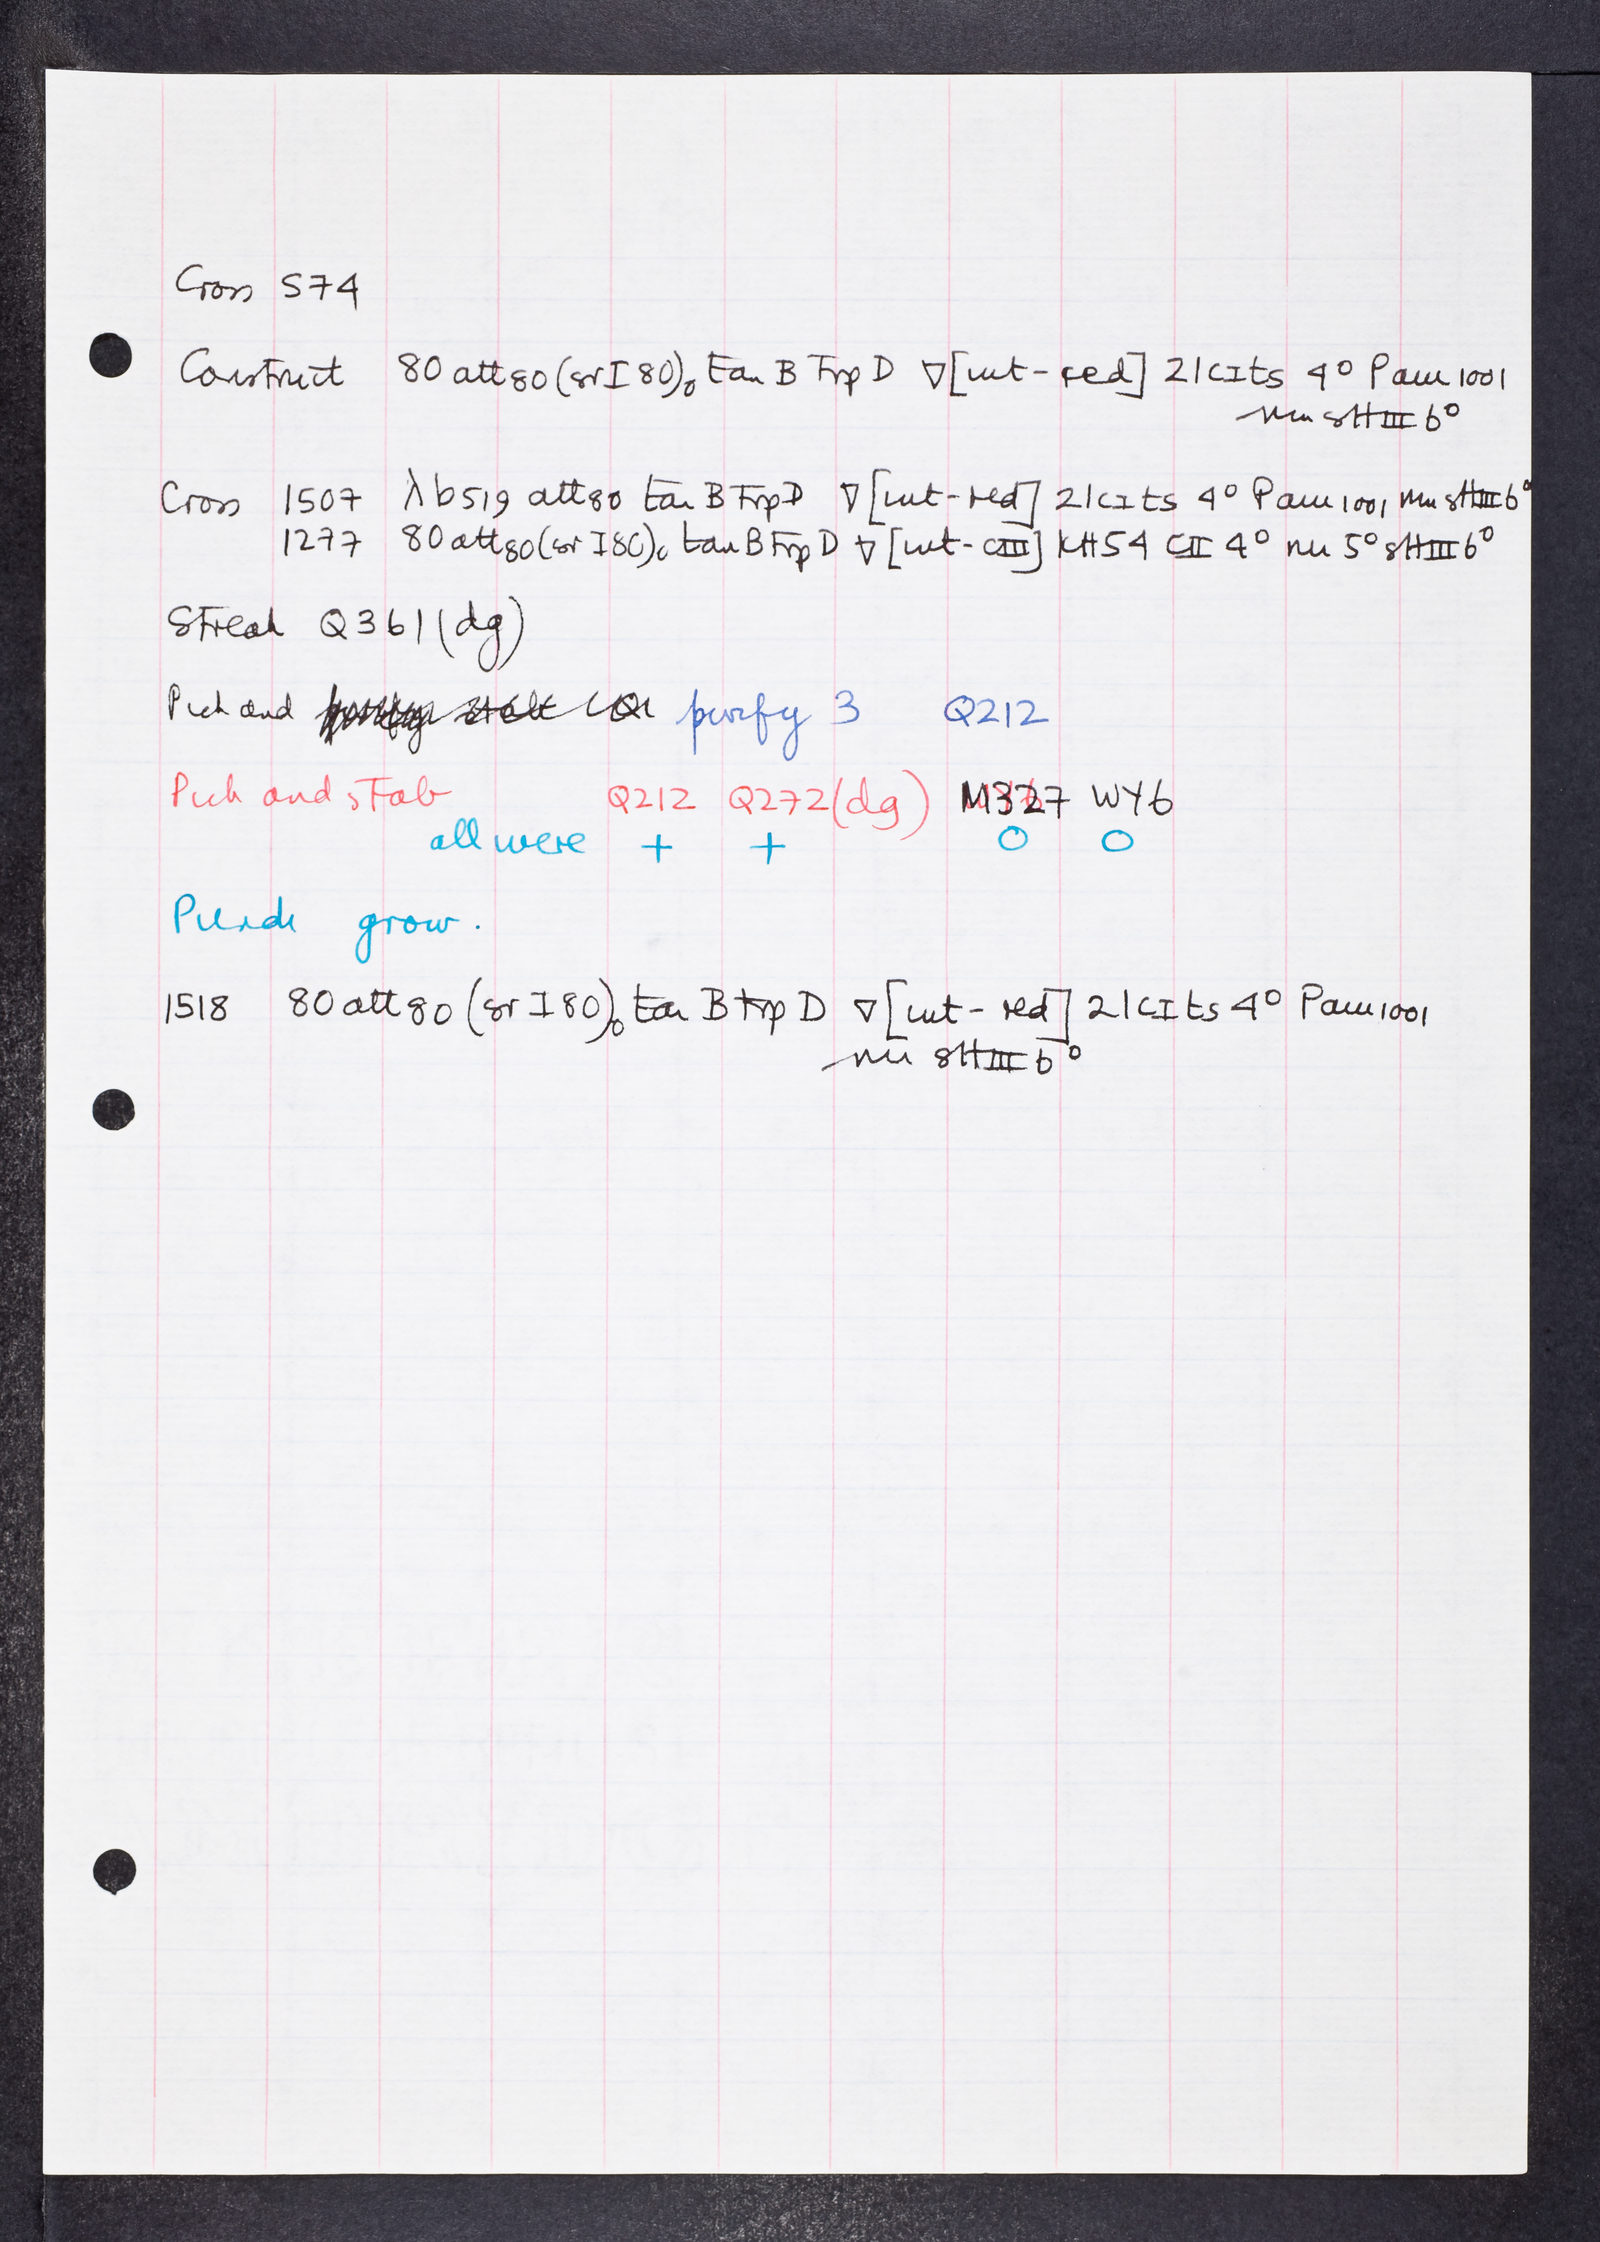 Cross 574
Construct 80 att80 (srI 80)₀ ton B Trp D ∇[int-red] 21 cI ts 4° Pam 1001
nin sHIII 6°
Cross 1507 λ b519 att80 ton B Trp D ∇[int-red] 21 cI ts 4° Pam 1001 nin sHIII 6°
1277 80 att80 (sr I 80)₀ ton B Trp D ∇[int-cIII] KH54 cII 4° nin 5° sHIII 6°
Streak Q361 (dg)
Pick and purify 3 Q212
Pick and stab Q212 Q272 (dg) M327 WY6
all were + + O O
Pick grow.
1518 80 att80 (sr I 80)₀ ton B trp D ∇[int-red] 21 cI ts 4° Pam 1001
nin sHIII 6°